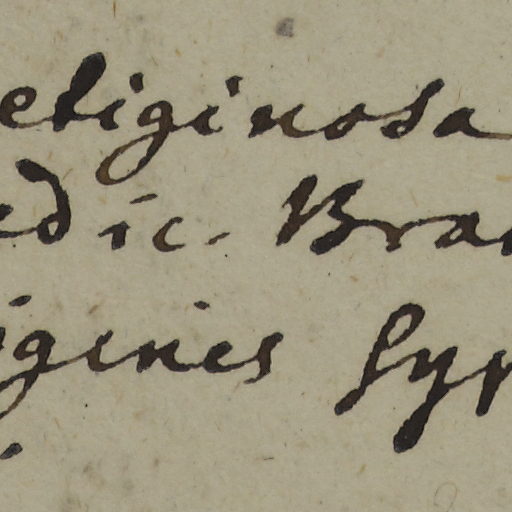 eliginosa
edic. Bra
igines Syr